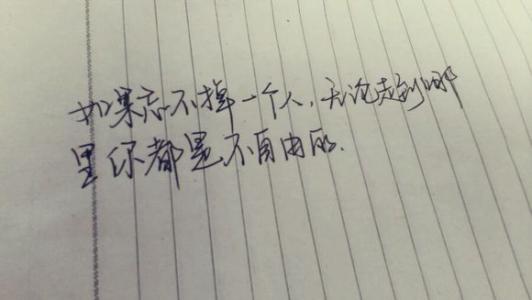 如果忘不掉一个人，无论走到哪
里你都是不自由的.